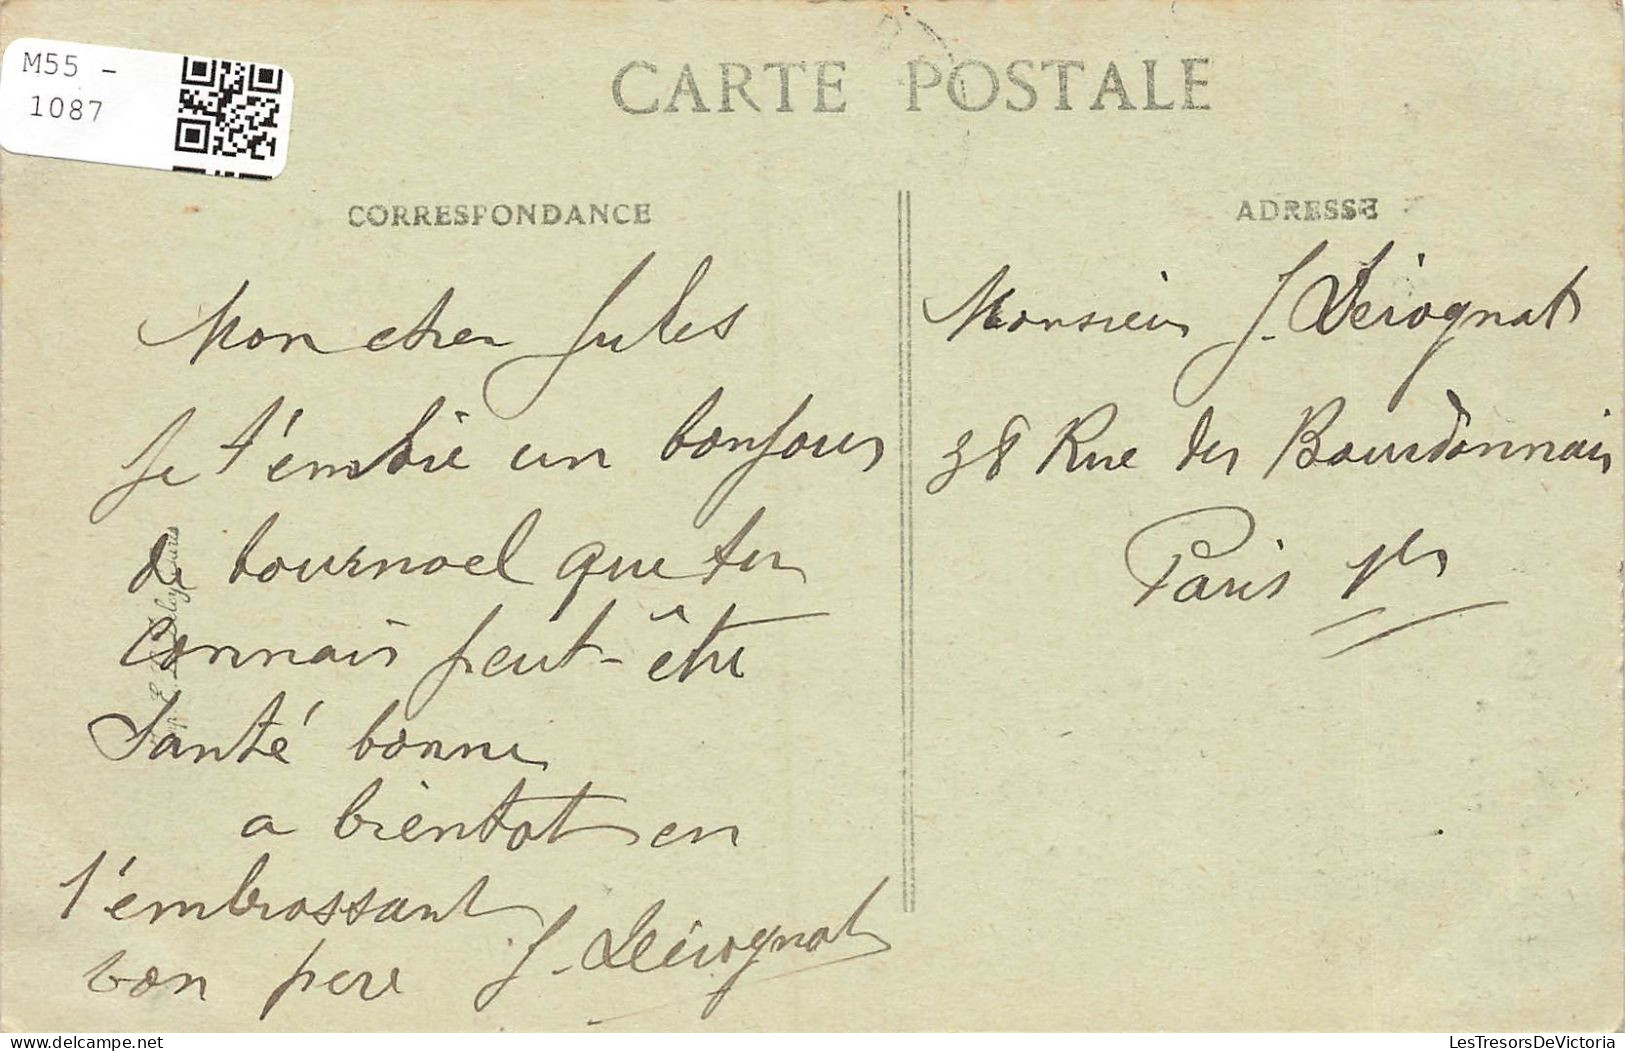 M55 -
1087
CARTE POSTALE
CORRESPONDANCE
Mon cher Jules
Je t'envoie un bonjour
de tournoel que tu
connais peut-être
Santé bonne
a bientot en
t'embrassant
ton pere J. Dérognat
ADRESSE
Monsieur J. Dérognat
38 Rue des Bourdonnais
Paris 1er
LesTresorsDeVictoria